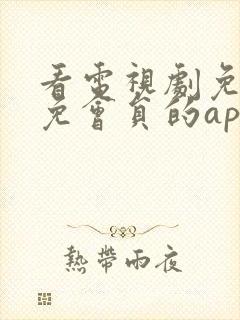 看電視劇免
免會員的ap
熱帶雨夜